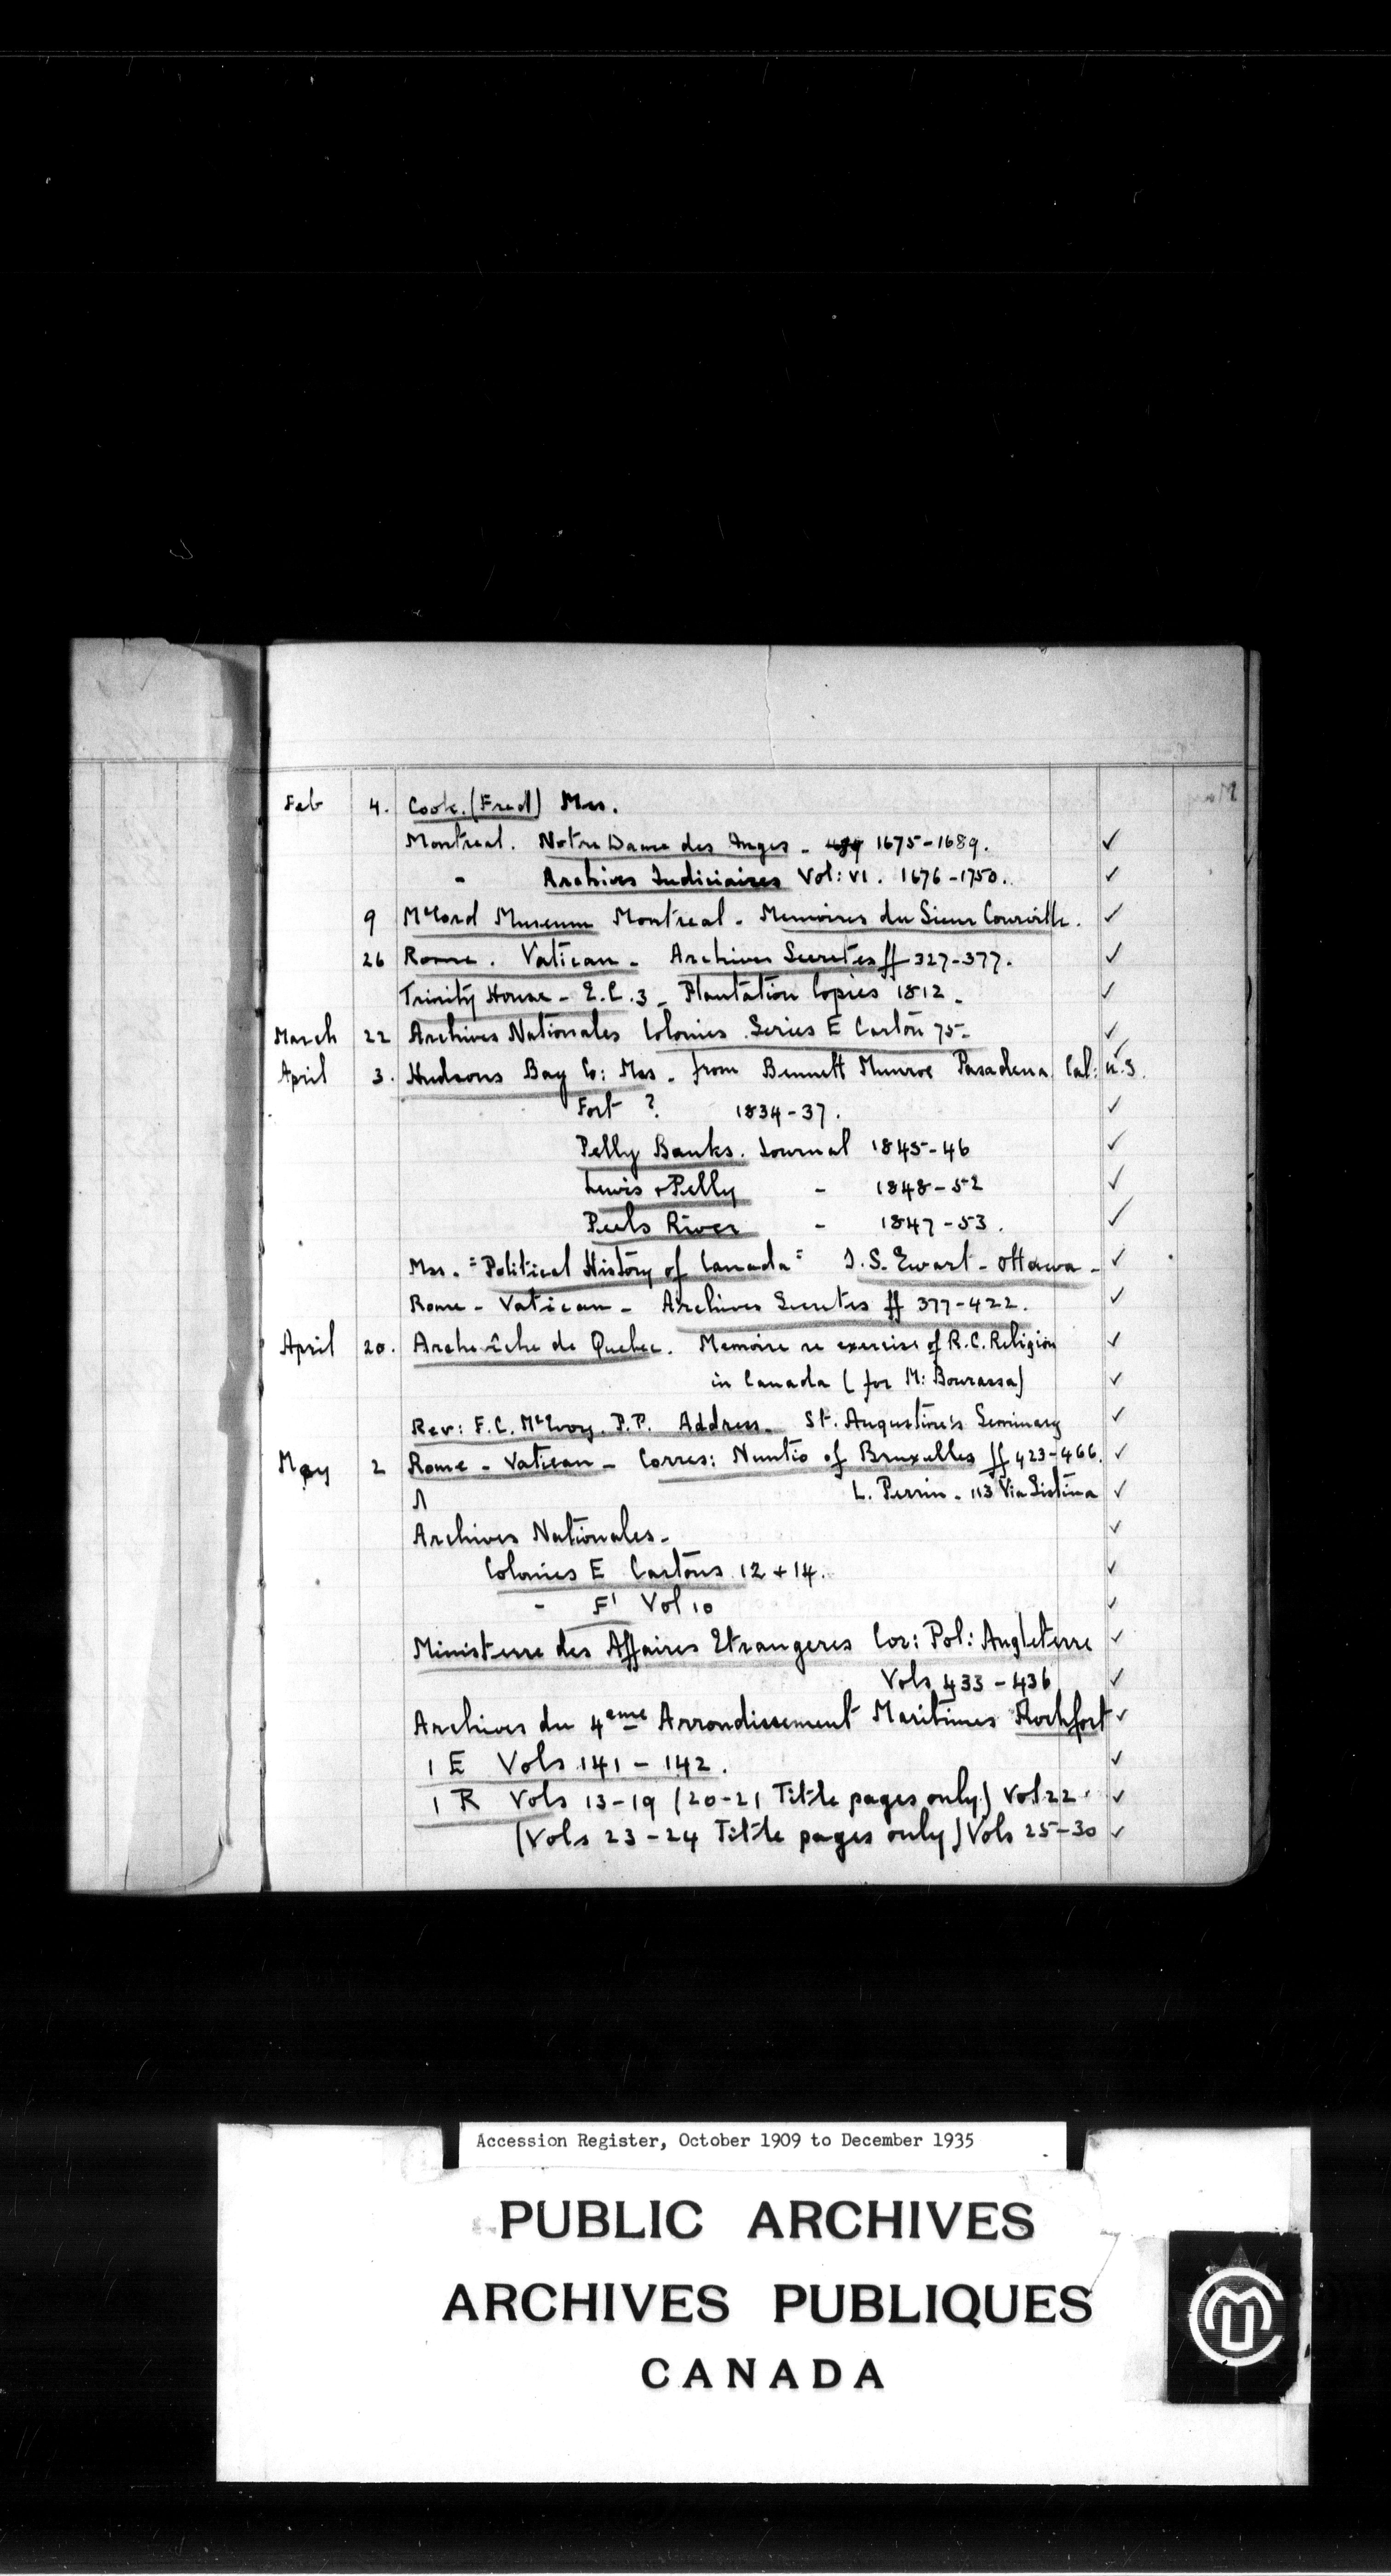 Feb 4. Cook. (Fred) Mss.
Montreal. Notre Dame des Anges - 1675-1689. ✓
" Archives Judiciaires Vol: VI. 1676-1750. ✓
9 McCord Museum Montreal - Memoires du Sieur Courville. ✓
26 Rome. Vatican - Archives Secretes ff 327-377. ✓
Trinity House - E.C.3 - Plantation Copies 1812 - ✓
March 22 Archives Nationales Colonies Series E Carton 75- ✓
April 3. Hudsons Bay Co: Mss - from Bennett Munroe Pasadena Cal: U.S. ✓
Fort ? 1834-37. ✓
Pelly Banks. Journal 1845-46 ✓
Lewis + Pelly - 1848-52 ✓
Peels River - 1847-53. ✓
Mss. "Political History of Canada" J.S. Ewart - Ottawa - ✓
Rome - Vatican - Archives Secretes ff 377-422. ✓
April 20. Archevêche de Quebec. Memoire re exercise of R.C. Religion ✓
in Canada (for M: Bourassa) ✓
Rev: F.C. McEvoy. P.P. Address - St. Augustine's Seminary ✓
May 2 Rome - Vatican - Corres: Nuntio of Bruxelles ff 423-466. ✓
L. Perrin - 113 Via Sistina ✓
Archives Nationales - ✓
Colonies E Cartons 12 + 14. ✓
- F' Vol 10 ✓
Ministerre des Affaires Etrangeres Cor: Pol: Angleterre ✓
Vols 433-436 ✓
Archives du 4eme Arrondissement Maritimes Rochfort ✓
1 E Vols 141-142. ✓
1 R Vols 13-19 (20-21 Title pages only) Vol 22 ✓
(Vols 23-24 Title pages only) Vols 25-30 ✓
Accession Register, October 1909 to December 1935
PUBLIC ARCHIVES
ARCHIVES PUBLIQUES
CANADA